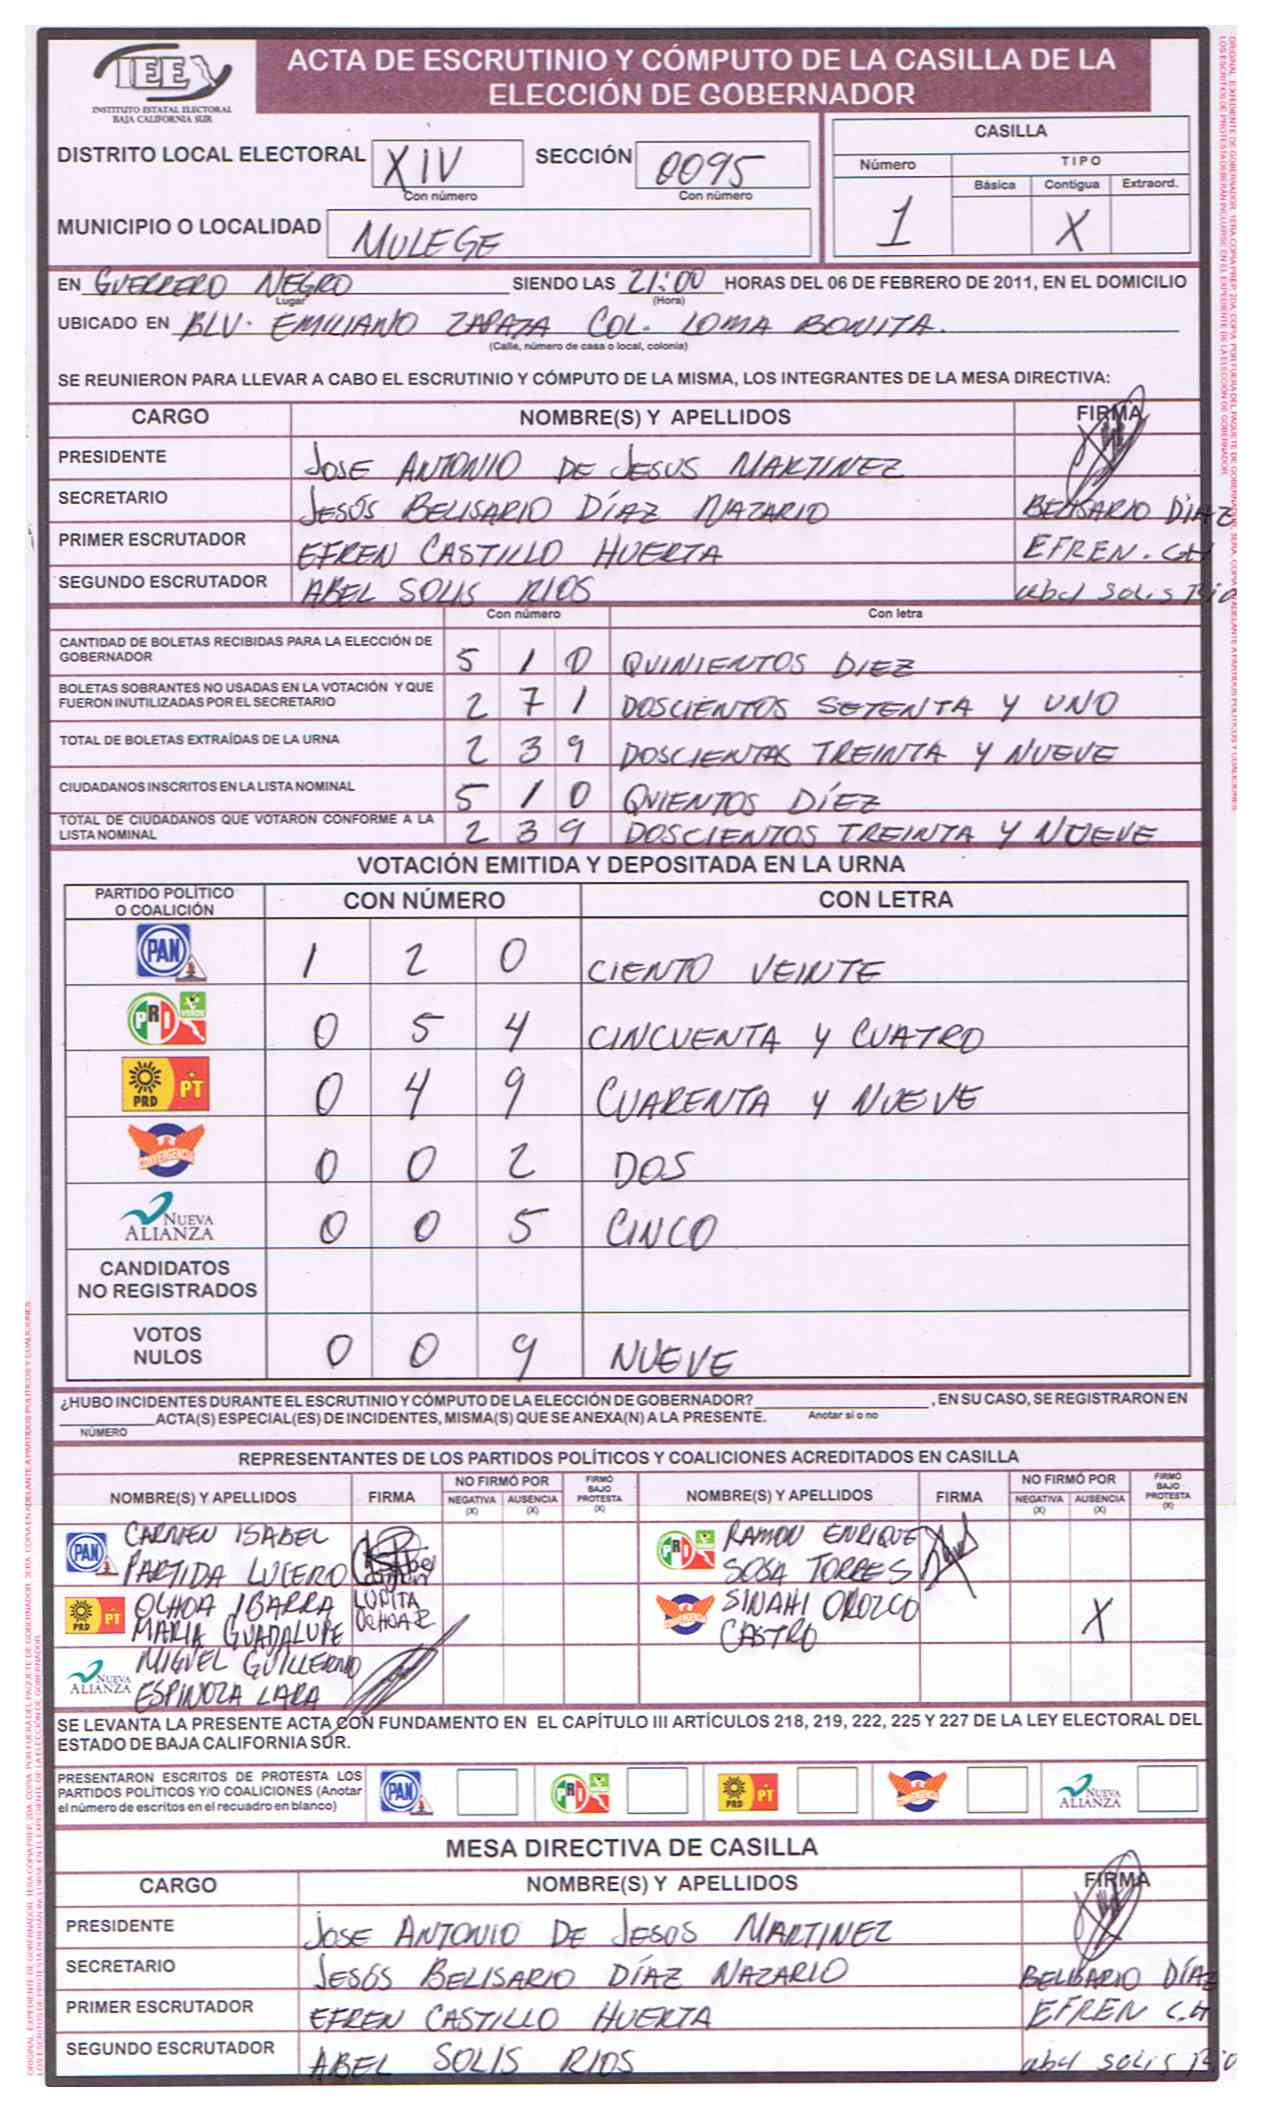 IEE
INSTITUTO ESTATAL ELECTORAL
BAJA CALIFORNIA SUR
ACTA DE ESCRUTINIO Y CÓMPUTO DE LA CASILLA DE LA
ELECCIÓN DE GOBERNADOR
DISTRITO LOCAL ELECTORAL XIV SECCIÓN 0095
Con número Con número
MUNICIPIO O LOCALIDAD MULEGE
CASILLA
Número TIPO
Básica Contigua Extraord.
1 X
EN GUERRERO NEGRO SIENDO LAS 21:00 HORAS DEL 06 DE FEBRERO DE 2011, EN EL DOMICILIO
Lugar (Hora)
UBICADO EN BLV. EMILIANO ZAPAZA COL. LOMA BONITA.
(Calle, número de casa o local, colonia)
SE REUNIERON PARA LLEVAR A CABO EL ESCRUTINIO Y CÓMPUTO DE LA MISMA, LOS INTEGRANTES DE LA MESA DIRECTIVA:
CARGO NOMBRE(S) Y APELLIDOS FIRMA
PRESIDENTE JOSE ANTONIO DE JESUS MARTINEZ
SECRETARIO JESÚS BELISARIO DÍAZ NAZARIO BELISARIO DÍAZ
PRIMER ESCRUTADOR EFREN CASTILLO HUERTA EFREN. C.H
SEGUNDO ESCRUTADOR ABEL SOLIS RIOS abel solis Rio
Con número Con letra
CANTIDAD DE BOLETAS RECIBIDAS PARA LA ELECCIÓN DE
GOBERNADOR 5 1 0 QUINIENTOS DIEZ
BOLETAS SOBRANTES NO USADAS EN LA VOTACIÓN Y QUE
FUERON INUTILIZADAS POR EL SECRETARIO 2 7 1 DOSCIENTOS SETENTA Y UNO
TOTAL DE BOLETAS EXTRAÍDAS DE LA URNA 2 3 9 DOSCIENTAS TREINTA Y NUEVE
CIUDADANOS INSCRITOS EN LA LISTA NOMINAL 5 1 0 QVIENTOS DÍEZ
TOTAL DE CIUDADANOS QUE VOTARON CONFORME A LA
LISTA NOMINAL 2 3 9 DOSCIENTOS TREINTA Y NUEVE
VOTACIÓN EMITIDA Y DEPOSITADA EN LA URNA
PARTIDO POLÍTICO
O COALICIÓN CON NÚMERO CON LETRA
PAN 1 2 0 CIENTO VEINTE
PRI VERDE 0 5 4 CINCUENTA Y CUATRO
PRD PT 0 4 9 CUARENTA Y NUEVE
CONVERGENCIA 0 0 2 DOS
NUEVA ALIANZA 0 0 5 CINCO
CANDIDATOS
NO REGISTRADOS
VOTOS
NULOS 0 0 9 NUEVE
¿HUBO INCIDENTES DURANTE EL ESCRUTINIO Y CÓMPUTO DE LA ELECCIÓN DE GOBERNADOR? , EN SU CASO, SE REGISTRARON EN
ACTA(S) ESPECIAL(ES) DE INCIDENTES, MISMA(S) QUE SE ANEXA(N) A LA PRESENTE. Anotar si o no
NÚMERO
REPRESENTANTES DE LOS PARTIDOS POLÍTICOS Y COALICIONES ACREDITADOS EN CASILLA
NOMBRE(S) Y APELLIDOS FIRMA NO FIRMÓ POR NEGATIVA (X) AUSENCIA (X) FIRMÓ BAJO PROTESTA (X) NOMBRE(S) Y APELLIDOS FIRMA NO FIRMÓ POR NEGATIVA (X) AUSENCIA (X) FIRMÓ BAJO PROTESTA (X)
PAN CARMEN ISABEL PRI RAMON ENRIQUE
PARTIDA LUCERO SOSA TORRES
PRD PT OCHOA IBARRA LUPITA CONVERGENCIA SINAHI OROZCO
MARIA GUADALUPE OCHOA R. CASTRO X
NUEVA ALIANZA MIGUEL GUILLERMO
ESPINOZA LARA
SE LEVANTA LA PRESENTE ACTA CON FUNDAMENTO EN EL CAPÍTULO III ARTÍCULOS 218, 219, 222, 225 Y 227 DE LA LEY ELECTORAL DEL
ESTADO DE BAJA CALIFORNIA SUR.
PRESENTARON ESCRITOS DE PROTESTA LOS
PARTIDOS POLÍTICOS Y/O COALICIONES (Anotar
el número de escritos en el recuadro en blanco)
PAN PRI PRD PT CONVERGENCIA NUEVA ALIANZA
MESA DIRECTIVA DE CASILLA
CARGO NOMBRE(S) Y APELLIDOS FIRMA
PRESIDENTE JOSE ANTONIO DE JESOS MARTINEZ
SECRETARIO JESÚS BELISARIO DÍAZ NAZARIO BELISARIO DÍAZ
PRIMER ESCRUTADOR EFREN CASTILLO HUERTA EFREN C.H
SEGUNDO ESCRUTADOR ABEL SOLIS RIOS abel solis Rio